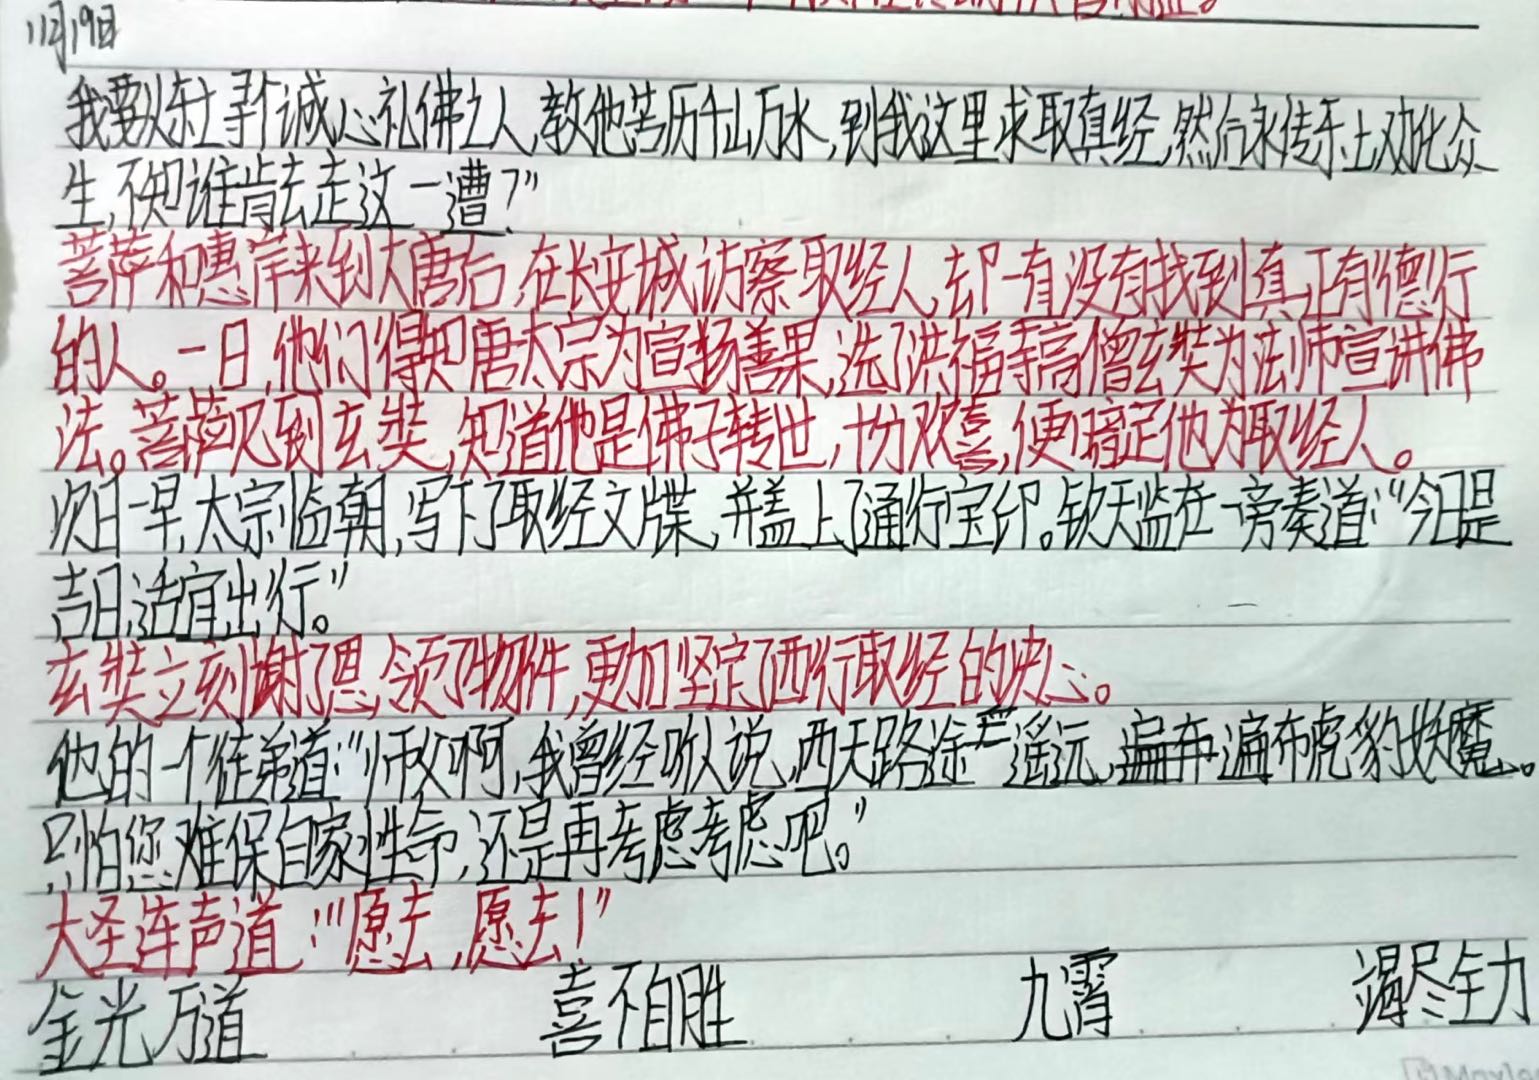 11月19日
我要从东土寻个诚心礼佛之人,教他苦历千山万水,到我这里求取真经,然后永传东土,劝化众
生,不知谁肯去走这一遭?”
菩萨和惠岸来到大唐后,在长安城访察取经人,却一直没有找到真正有德行
的人。一日,他们得知唐太宗为宣扬善果,选了洪福寺高僧玄奘为法师宣讲佛
法。菩萨见到玄奘,知道他是佛子转世,十分欢喜,便暗定他为取经人。
次日一早,太宗临朝,写下了取经文牒,并盖上了通行宝印。钦天监在一旁奏道:“今日是
吉日,适宜出行。”
玄奘立刻谢了恩,领了物件,更加坚定了西行取经的决心。
他的一个徒弟道:“师父啊,我曾经听人说,西天路途遥远,遍布虎豹妖魔。
只怕您难保自家性命,还是再考虑考虑吧。”
大圣连声道:“愿去,愿去!”
金光万道 喜不自胜 九霄 竭尽全力